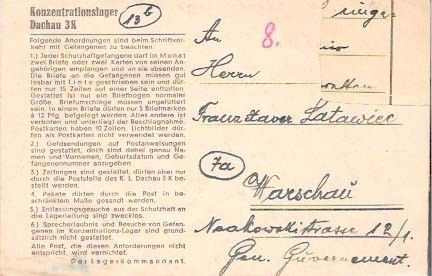 Konzentrationslager
Dachau 3K
13b
Folgende Anordnungen sind beim Schriftver-
kehr mit Gefangenen zu beachten:
1.) Jeder Schutzhaftgefangene darf im Monat
zwei Briefe oder zwei Karten von seinen An-
gehörigen empfangen und an sie absenden.
Die Briefe an die Gefangenen müssen gut
lesbar mit Tinte geschrieben sein und dür-
fen nur 15 Zeilen auf einer Seite enthalten.
Gestattet ist nur ein Briefbogen normaler
Größe. Briefumschläge müssen ungefüttert
sein. In einem Briefe dürfen nur 5 Briefmarken
à 12 Pfg. beigelegt werden. Alles andere ist
verboten und unterliegt der Beschlagnahme.
Postkarten haben 10 Zeilen. Lichtbilder dür-
fen als Postkarten nicht verwendet werden.
2.) Geldsendungen auf Postanweisungen
sind gestattet, doch sind dabei genau Na-
men und Vornamen, Geburtsdatum und Ge-
fangenennummer anzugeben.
3.) Zeitungen sind gestattet, dürfen aber nur
durch die Poststelle des K. L. Dachau 3K be-
stellt werden.
4. Pakete dürfen durch die Post in be-
schränktem Maße gesandt werden.
5.) Entlassungsgesuche aus der Schutzhaft an
die Lagerleitung sind zwecklos.
6.) Sprecherlaubnis und Besuche von Gefan-
genen im Konzentrations-Lager sind grund-
sätzlich nicht gestattet.
Alle Post, die diesen Anforderungen nicht
entspricht, wird vernichtet.
Der Lagerkommandant.
8.
An
Herrn
Franz Xaver Latawiec
7a
Warschau
12/1.
Gen. Guvernement.